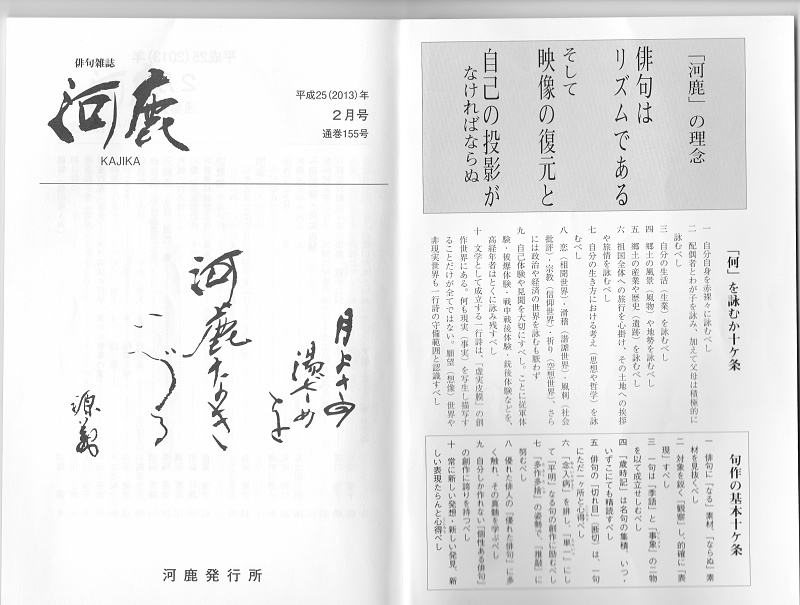 俳句雑誌
河鹿
KAJIKA
平成25(2013)年
2月号
通巻155号
河鹿
源義
河鹿発行所
「河鹿」の理念
俳句は
リズムである
そして
映像の復元と
自己の投影が
なければならぬ
「何」を詠むか十ケ条
一 自分自身を赤裸々に詠むべし
二 配偶者とわが子を詠み、加えて父母は積極的に
詠むべし
三 自分の生活(生業)を詠むべし
四 郷土の風景(風物)や地勢を詠むべし
五 郷土の産業や歴史(遺跡)を詠むべし
六 祖国全体への旅行を心掛け、その土地への挨拶
や旅情を詠むべし
七 自分の生き方における考え(思想や哲学)を詠
むべし
八 恋(相聞世界)・滑稽(諧謔世界)・風刺(社会
批評)・宗教(信仰世界)、祈り(空想世界)、さら
には政治や経済の世界を詠むも厭わず
九 自己体験や見聞を大切にすべし。ことに従軍体
験・被爆体験・戦中戦後体験・銃後体験などを、
高経年者はとくに詠み残すべし
十 文学として成立する一行詩は、「虚実皮膜」の創
作世界にある。何も現実(事実)を写生し描写す
ることだけが全てではない。願望(想像)世界や
非現実世界も一行詩の守備範囲と認識すべし
句作の基本十ケ条
一 俳句に「なる」素材、「ならぬ」素
材を見抜くべし
二 対象を鋭く「観察」し、的確に「表
現」すべし
三 一句は「季語」と「事象」の二物
を以て成立せしむべし
四 「歳時記」は名句の集積、いつ・
いずこにても精読すべし
五 俳句の「切れ目」(断切)は、一句
にただ一ヶ所と心得べし
六 「念入病」を排し、「単一」にし
て「平明」なる句の創作に励むべし
七 「多作多捨」の姿勢で、「推敲」に
努むべし
八 優れた俳人の「優れた俳句」に多
く触れ、その真髄を学ぶべし
九 自分しか作れない「個性ある俳句」
の創作に誇りを持つべし
十 常に新しい発想・新しい発見、新
しい表現たらんと心得べし